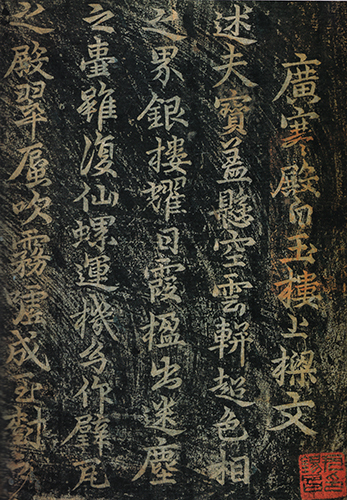 廣寒殿白玉樓上樑文
述夫寶盖懸空雲軿超色相
之界銀樓耀日霞楹出迷塵
之雖復仙螺運機幻作璧瓦
之殿翠蜃吹霧噓成玉樹之